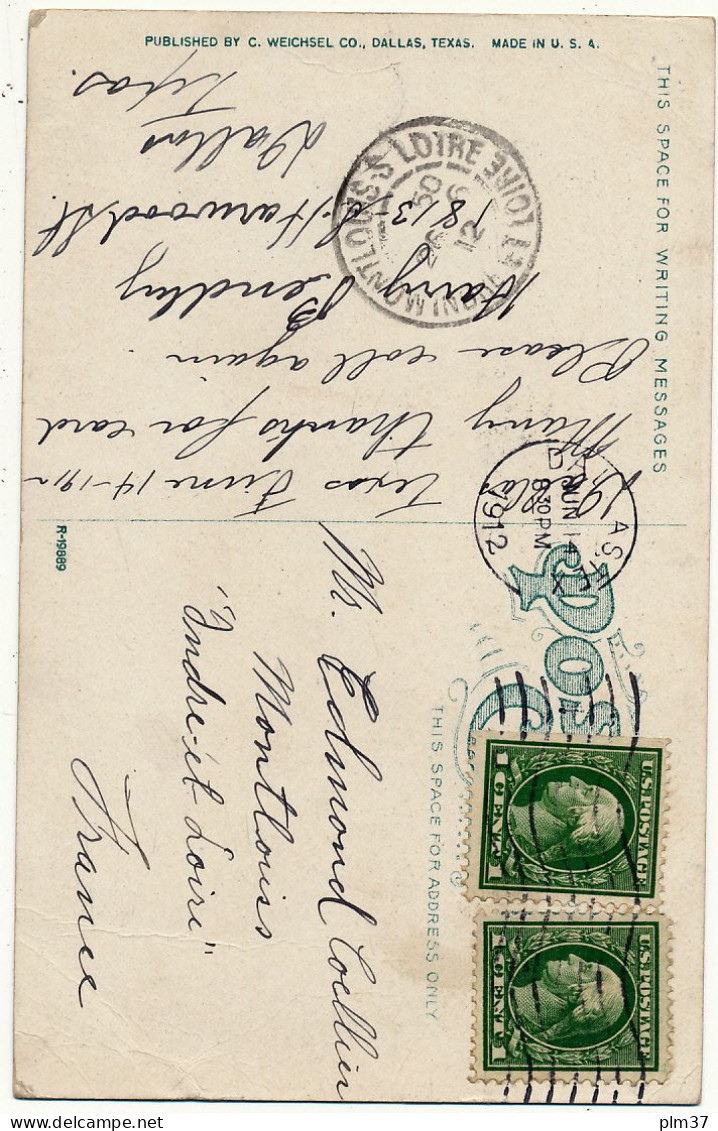 PUBLISHED BY C. WEICHSEL CO., DALLAS, TEXAS. MADE IN U. S. A.
THIS SPACE FOR WRITING MESSAGES
Dallas Texas June 14-1912
Many thanks for card
Please call again
Harry Pendley
1813 S. Harwood St.
Dallas
Texas.
MONTLOUIS-S-LOIRE
INDRE ET LOIRE
26
6
12
DALLAS, TEX
JUN 14
8 30 PM
1912
R-19889
POS
C
THIS SPACE FOR ADDRESS ONLY
M. Edmond Coellier
Montlouiss
"Indre-et Loire"
France
U.S. POSTAGE
1 CENT 1
U.S. POSTAGE
1 CENT 1
plm37